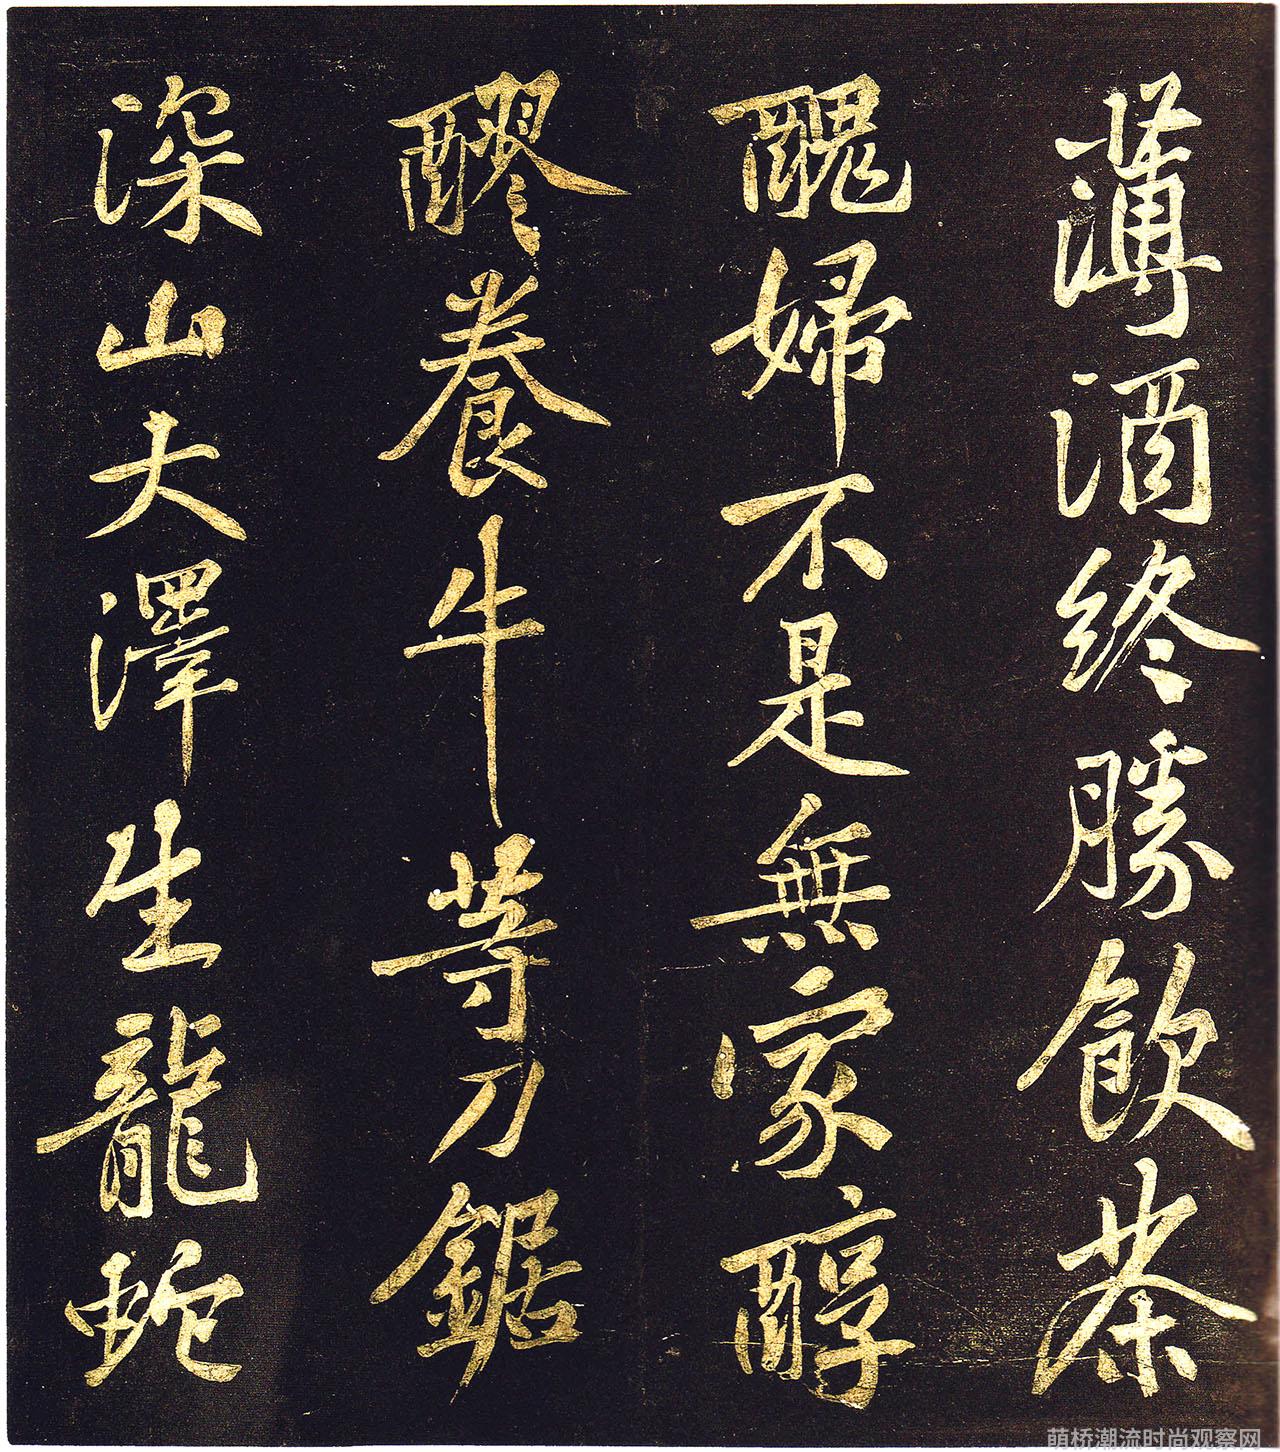 薄酒終勝飲茶
醜婦不是無家醇
醪養牛等刀鋸
深山大澤生龍蛇
萌桥潮流时尚观察网